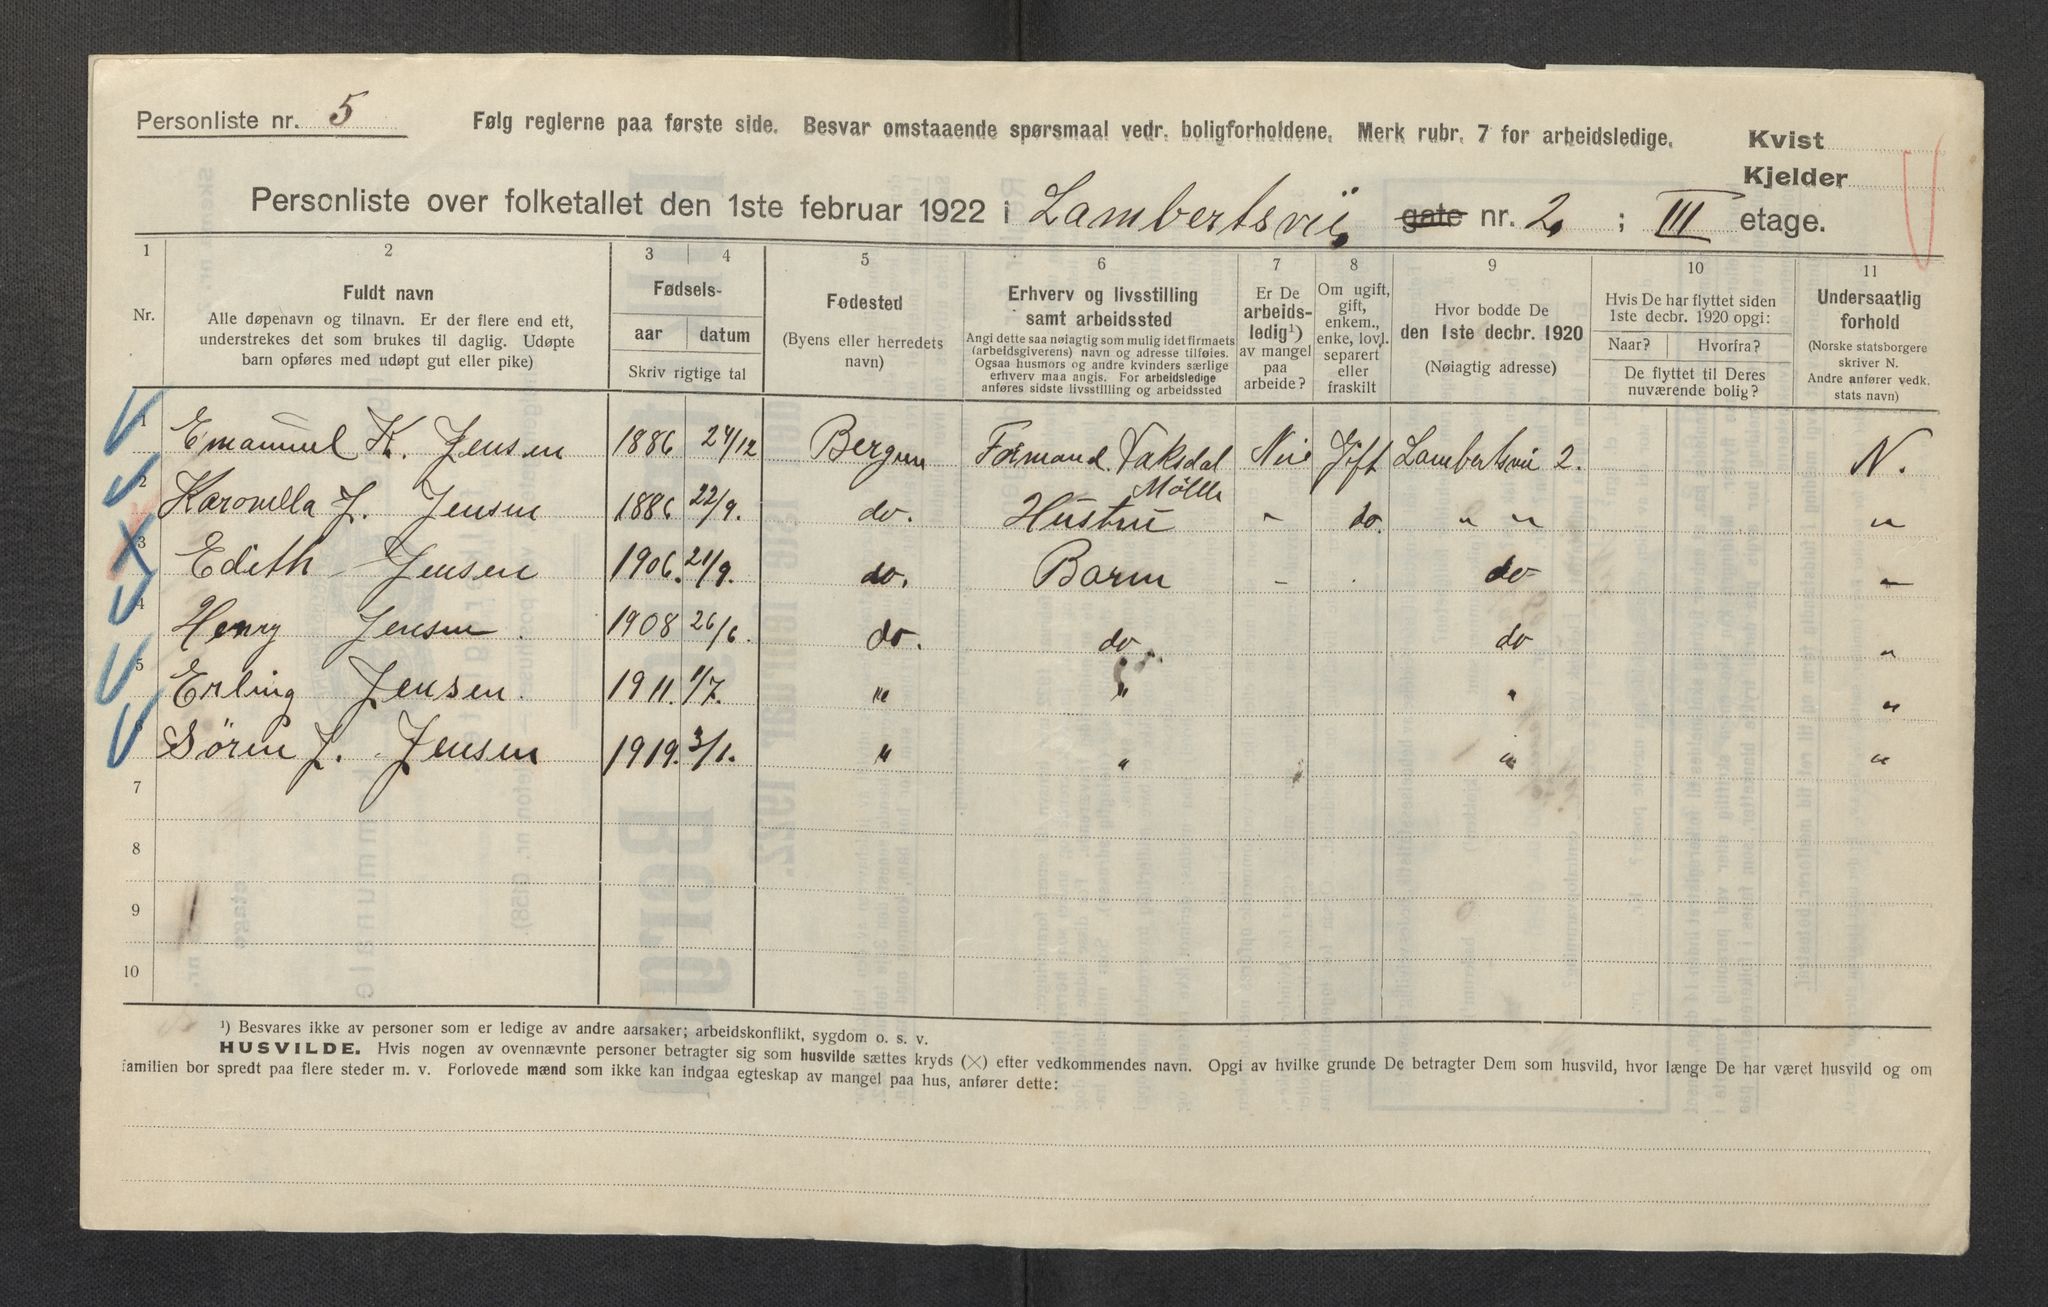 Personliste nr. 5 Følg reglerne paa første side. Besvar omstaaende spørsmaal vedr. boligforholdene. Merk rubr. 7 for arbeidsledige.
Kvist
Kjelder
Personliste over folketallet den 1ste februar 1922 i Lambertsvei gate nr. 2 ; III etage.
1 2 3 4 5 6 7 8 9 10 11
Nr.
Fuldt navn
Alle døpenavn og tilnavn. Er der flere end ett,
understrekes det som brukes til daglig. Udøpte
barn opføres med udøpt gut eller pike)
Fødsels-
aar datum
Skriv rigtige tal
Fodested
(Byens eller herredets
navn)
Erhverv og livsstilling
samt arbeidssted
Angi dette saa nøiagtig som mulig idet firmaets
(arbeidsgiverens) navn og adresse tilføies.
Ogsaa husmors og andre kvinders særlige
erhverv maa angis. For arbeidsledige
anføres sidste livsstilling og arbeidssted
Er De
arbeids-
ledig¹)
av mangel
paa
arbeide?
Om ugift,
gift,
enkem.,
enke, lovl.
separert
eller
fraskilt
Hvor bodde De
den 1ste decbr. 1920
(Nøiagtig adresse)
Hvis De har flyttet siden
1ste decbr. 1920 opgi:
Naar? Hvorfra?
De flyttet til Deres
nuværende bolig?
Undersaatlig
forhold
(Norske statsborgere
skriver N.
Andre anfører vedk.
stats navn)
1 Emanuel K. Jensen 1886 24/12 Bergen Formand Vaksdal Mølle Nei Gift Lambertsvei 2. N.
2 Karonella J. Jensen 1886 22/9. do. Hustru " do. " " "
3 Edith Jensen 1906. 21/9. do. Barn - . do "
4 Henry Jensen. 1908 26/6. do. do do "
5 Erling Jensen. 1911. 1/7. " " " "
6 Søren J. Jensen 1919. 3/1. " " " "
7
8
9
10
¹) Besvares ikke av personer som er ledige av andre aarsaker; arbeidskonflikt, sygdom o. s. v.
HUSVILDE. Hvis nogen av ovennævnte personer betragter sig som husvilde sættes kryds (×) efter vedkommendes navn. Opgi av hvilke grunde De betragter Dem som husvild, hvor længe De har været husvild og om
familien bor spredt paa flere steder m. v. Forlovede mænd som ikke kan indgaa egteskap av mangel paa hus, anfører dette: